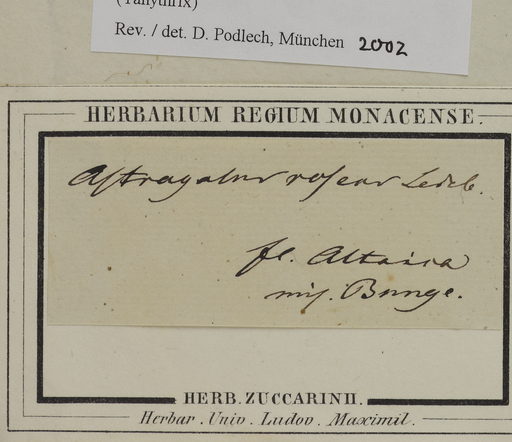 (Tanythrix)
Rev. / det. D. Podlech, München 2002
HERBARIUM REGIUM MONACENSE.
Astragalus roseus Ledeb.
fl. Altaica
mis. Bunge.
HERB. ZUCCARINII.
Herbar. Univ. Ludov. Maximil.